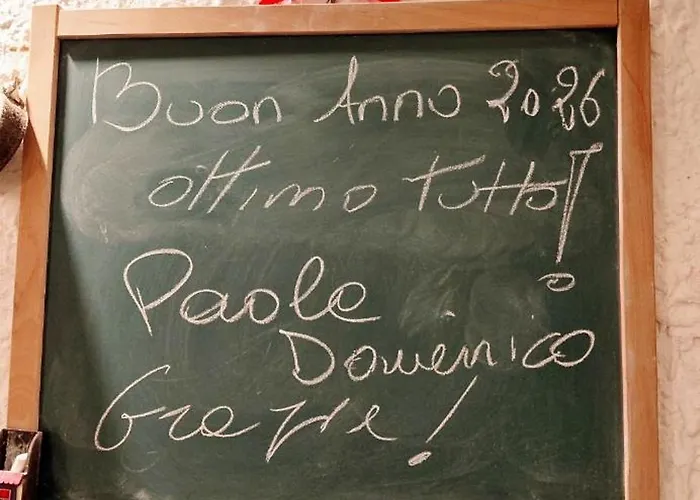 Buon Anno 2026
ottimo tutto!
Paole
Domenico
Grazie!